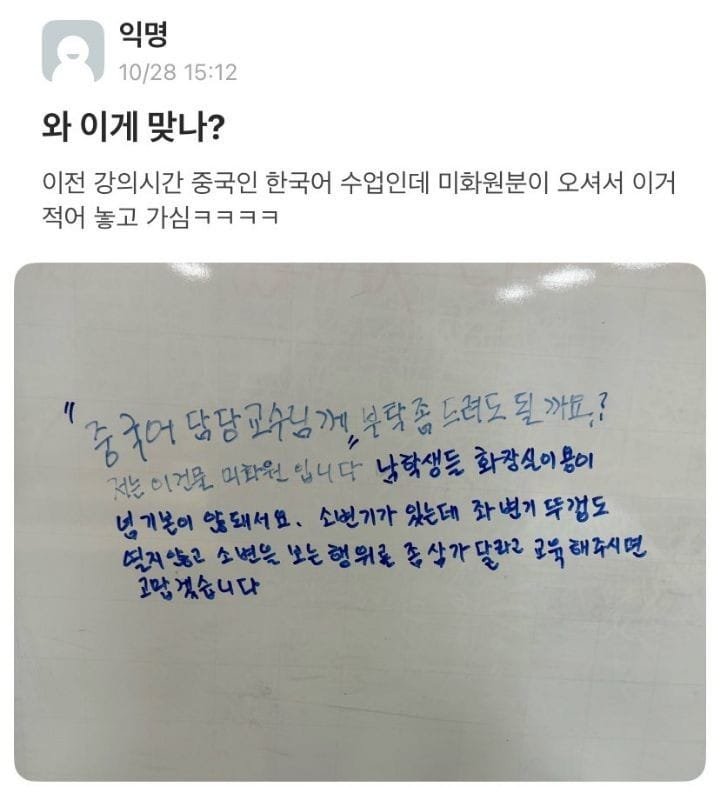 익명
10/28 15:12
와 이게 맞나?
이전 강의시간 중국인 한국어 수업인데 미화원분이 오셔서 이거
적어 놓고 가심ㅋㅋㅋㅋ
"중국어 담당교수님께" 부탁좀 드려도 될까요?
저는 이건물 미화원 입니다 남학생들 화장실이용이
넘기본이 않돼서요. 소변기가 있는데 좌변기 뚜껑도
열지않고 소변을 보는행위를 좀 삼가 달라고 교육해주시면
고맙겠습니다